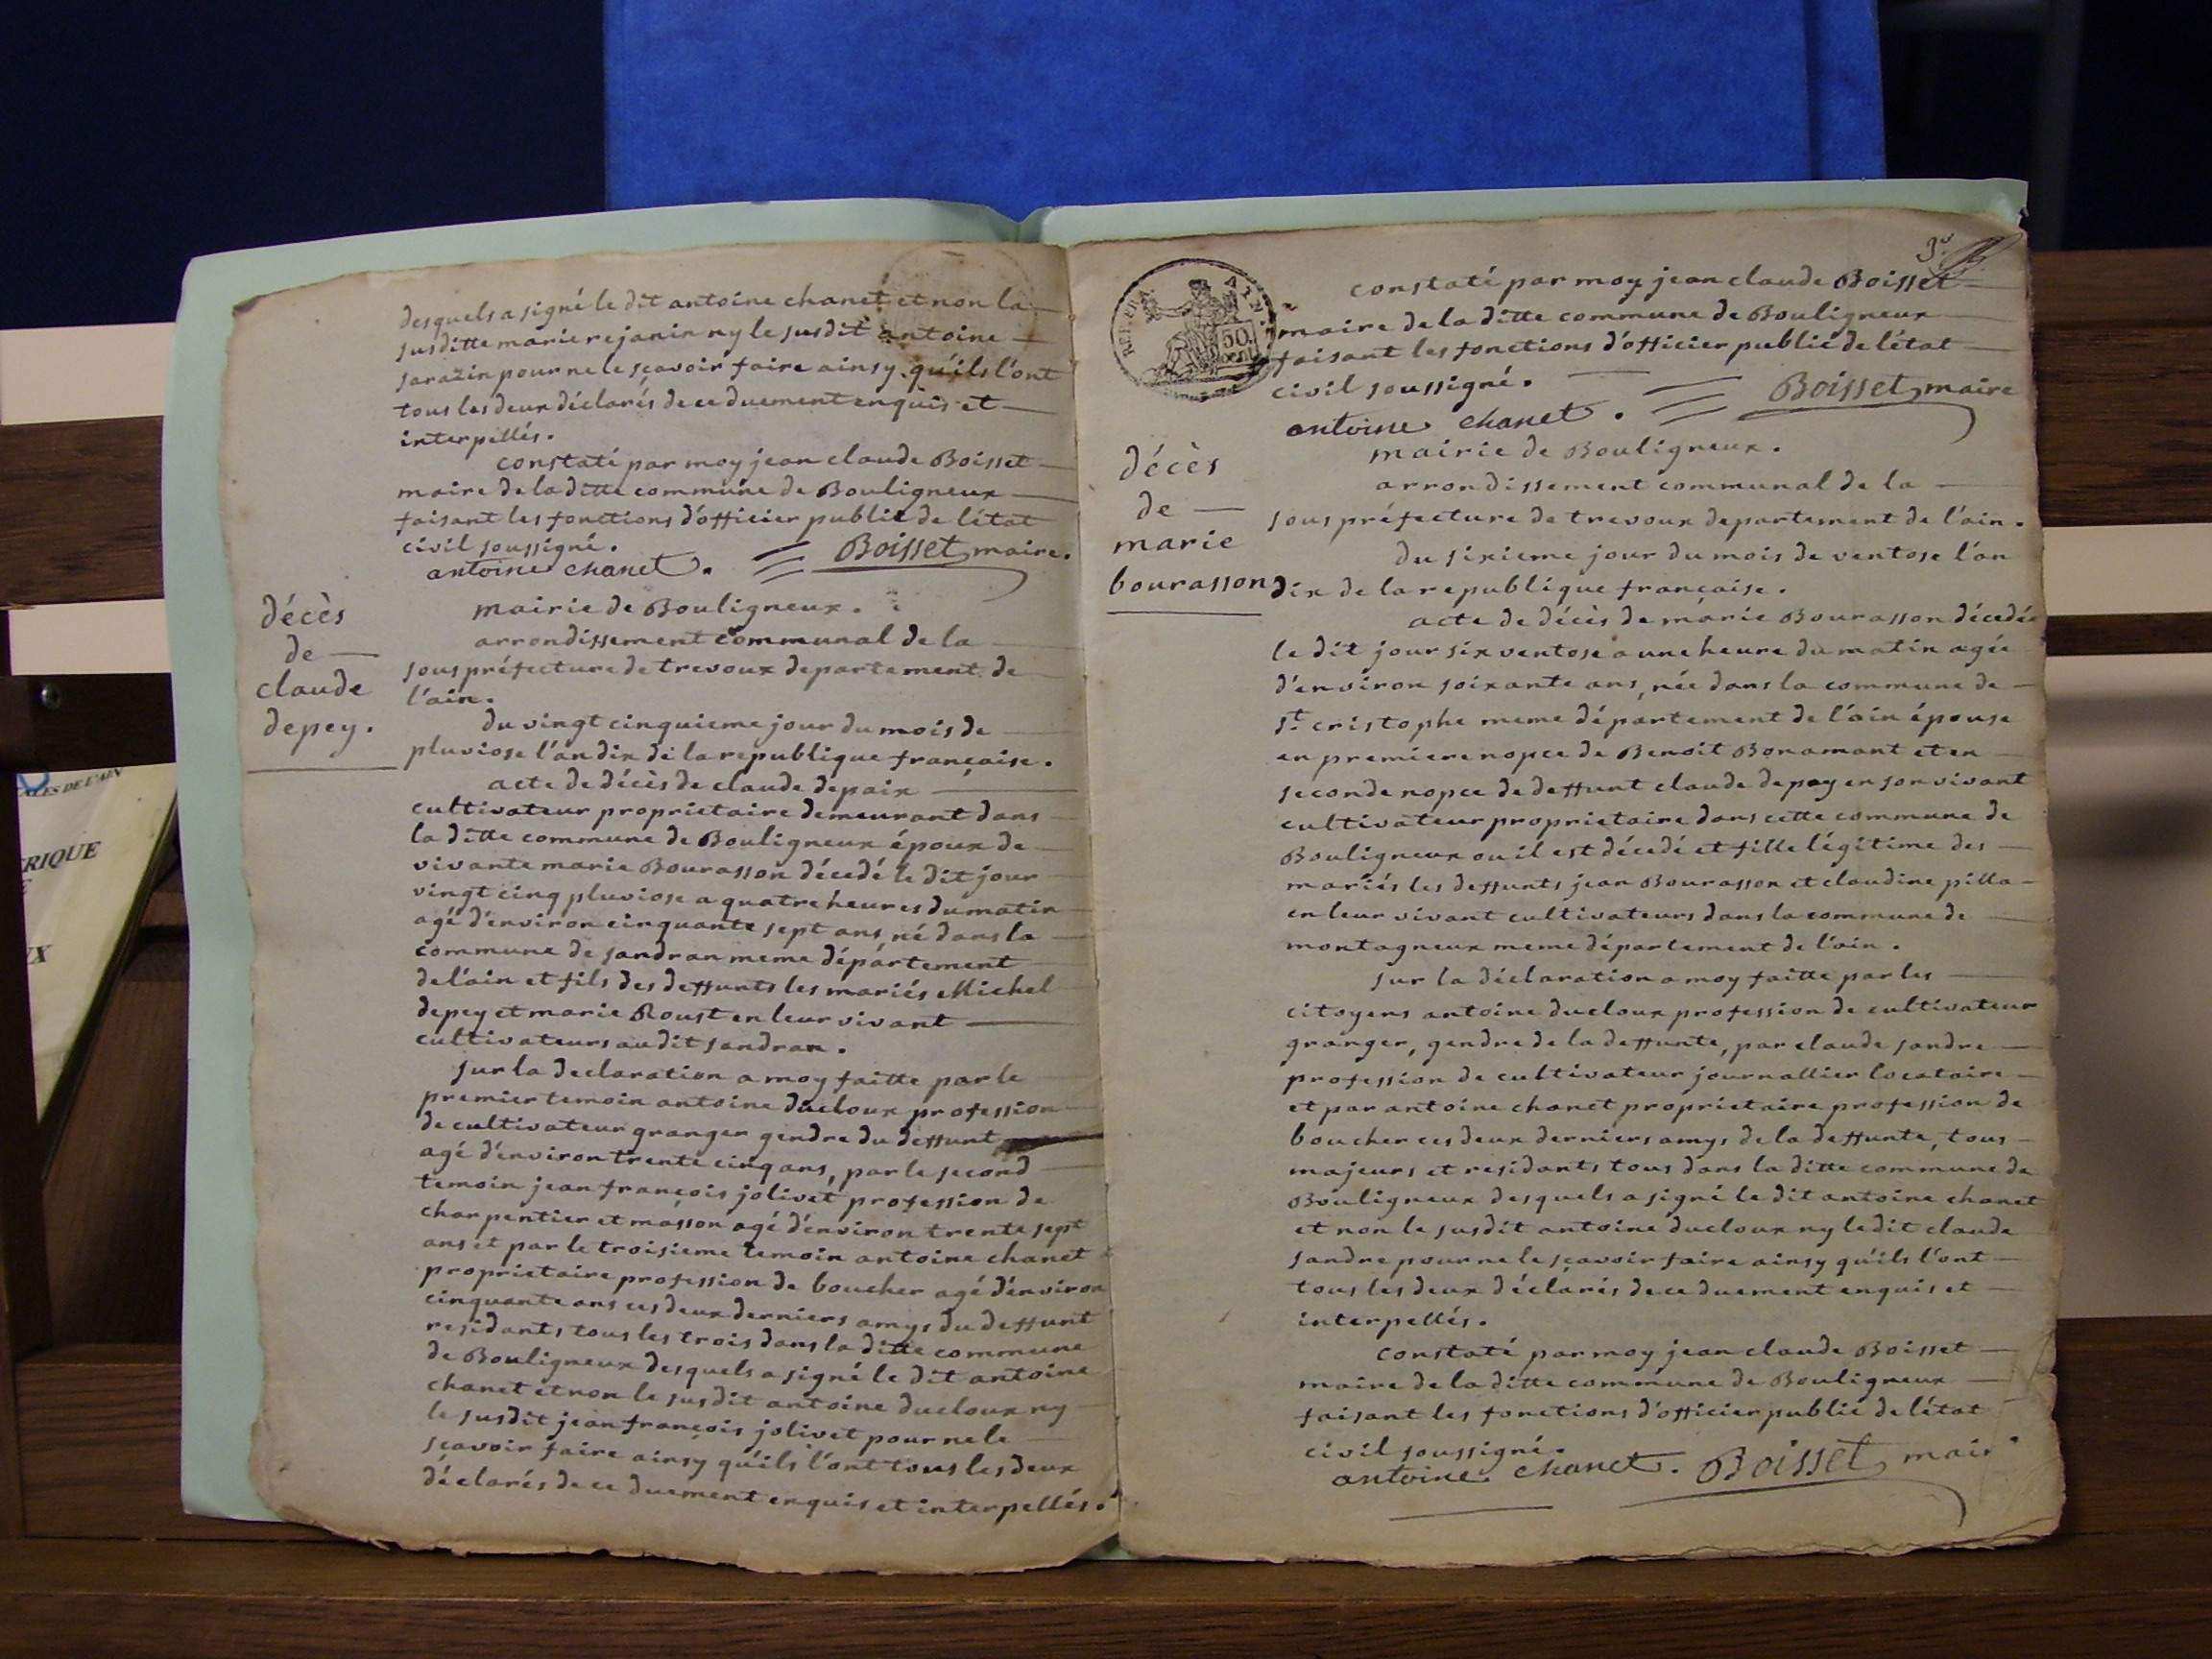 desquels a signé le dit antoine chanet et non la
susditte marie rejanin ny le susdit antoine
sarazin pour ne le sçavoir faire ainsy qu'ils l'ont
tous les deux déclarés de ce duement enquis et
interpellés.
constaté par moy jean claude Boisset
maire de la ditte commune de Bouligneux
faisant les fonctions d'officier public de l'état
civil soussigné.
antoine chanet. Boisset maire.
décès
de
claude
depey.
mairie de Bouligneux.
arrondissement communal de la
sous préfecture de trevoux departement de
l'ain.
du vingt cinquieme jour du mois de
pluviose l'an dix de la republique française.
acte de décès de claude depaix
cultivateur proprietaire demeurant dans
la ditte commune de Bouligneux époux de
vivante marie Bourasson décedé le dit jour
vingt cinq pluviose a quatre heures du matin
agé d'environ cinquante sept ans, né dans la
commune de sandran meme département
de l'ain et fils des deffunts les mariés Michel
depey et marie Roust en leur vivant
cultivateurs au dit sandran.
sur la declaration a moy faitte par le
premier temoin antoine ducloux profession
de cultivateur granger gendre du deffunt
agé d'environ trente cinq ans, par le second
temoin jean françois jolivet profession de
charpentier et masson agé d'environ trente sept
ans et par le troisieme temoin antoine chanet
proprietaire profession de boucher agé d'environ
cinquante ans ces deux derniers amys du deffunt
residants tous les trois dans la ditte commune
de Bouligneux desquels a signé le dit antoine
chanet et non le susdit antoine ducloux ny
le susdit jean françois jolivet pour ne le
sçavoir faire ainsy qu'ils l'ont tous les deux
déclarés de ce duement enquis et interpellés.
constaté par moy jean claude Boisset
maire de la ditte commune de Bouligneux
faisant les fonctions d'officier public de l'état
civil soussigné.
antoine chanet. Boisset maire
décès
de
marie
bourasson
mairie de Bouligneux.
arrondissement communal de la
sous préfecture de trevoux departement de l'ain.
du sixieme jour du mois de ventose l'an
dix de la republique française.
acte de décès de marie Bourasson décedée
le dit jour six ventose a une heure du matin agée
d'environ soixante ans, née dans la commune de
st. cristophe meme département de l'ain épouse
en premiere nopce de Benoit Bonamant et en
seconde nopce de deffunt claude depay en son vivant
cultivateur proprietaire dans cette commune de
Bouligneux ou il est décedé et fille légitime des
mariés les deffunts jean Bourasson et claudine pilla
en leur vivant cultivateurs dans la commune de
montagneux meme département de l'ain.
sur la déclaration a moy faitte par les
citoyens antoine ducloux profession de cultivateur
granger, gendre de la deffunte, par claude sandre
profession de cultivateur journallier locataire
et par antoine chanet proprietaire profession de
boucher ces deux derniers amys de la deffunte, tous
majeurs et residants tous dans la ditte commune de
Bouligneux desquels a signé le dit antoine chanet
et non le susdit antoine ducloux ny le dit claude
sandre pour ne le sçavoir faire ainsy qu'ils l'ont
tous les deux déclarés de ce duement enquis et
interpellés.
constaté par moy jean claude Boisset
maire de la ditte commune de Bouligneux
faisant les fonctions d'officier public de l'état
civil soussigné.
antoine chanet. Boisset maire
50.
RIQUE